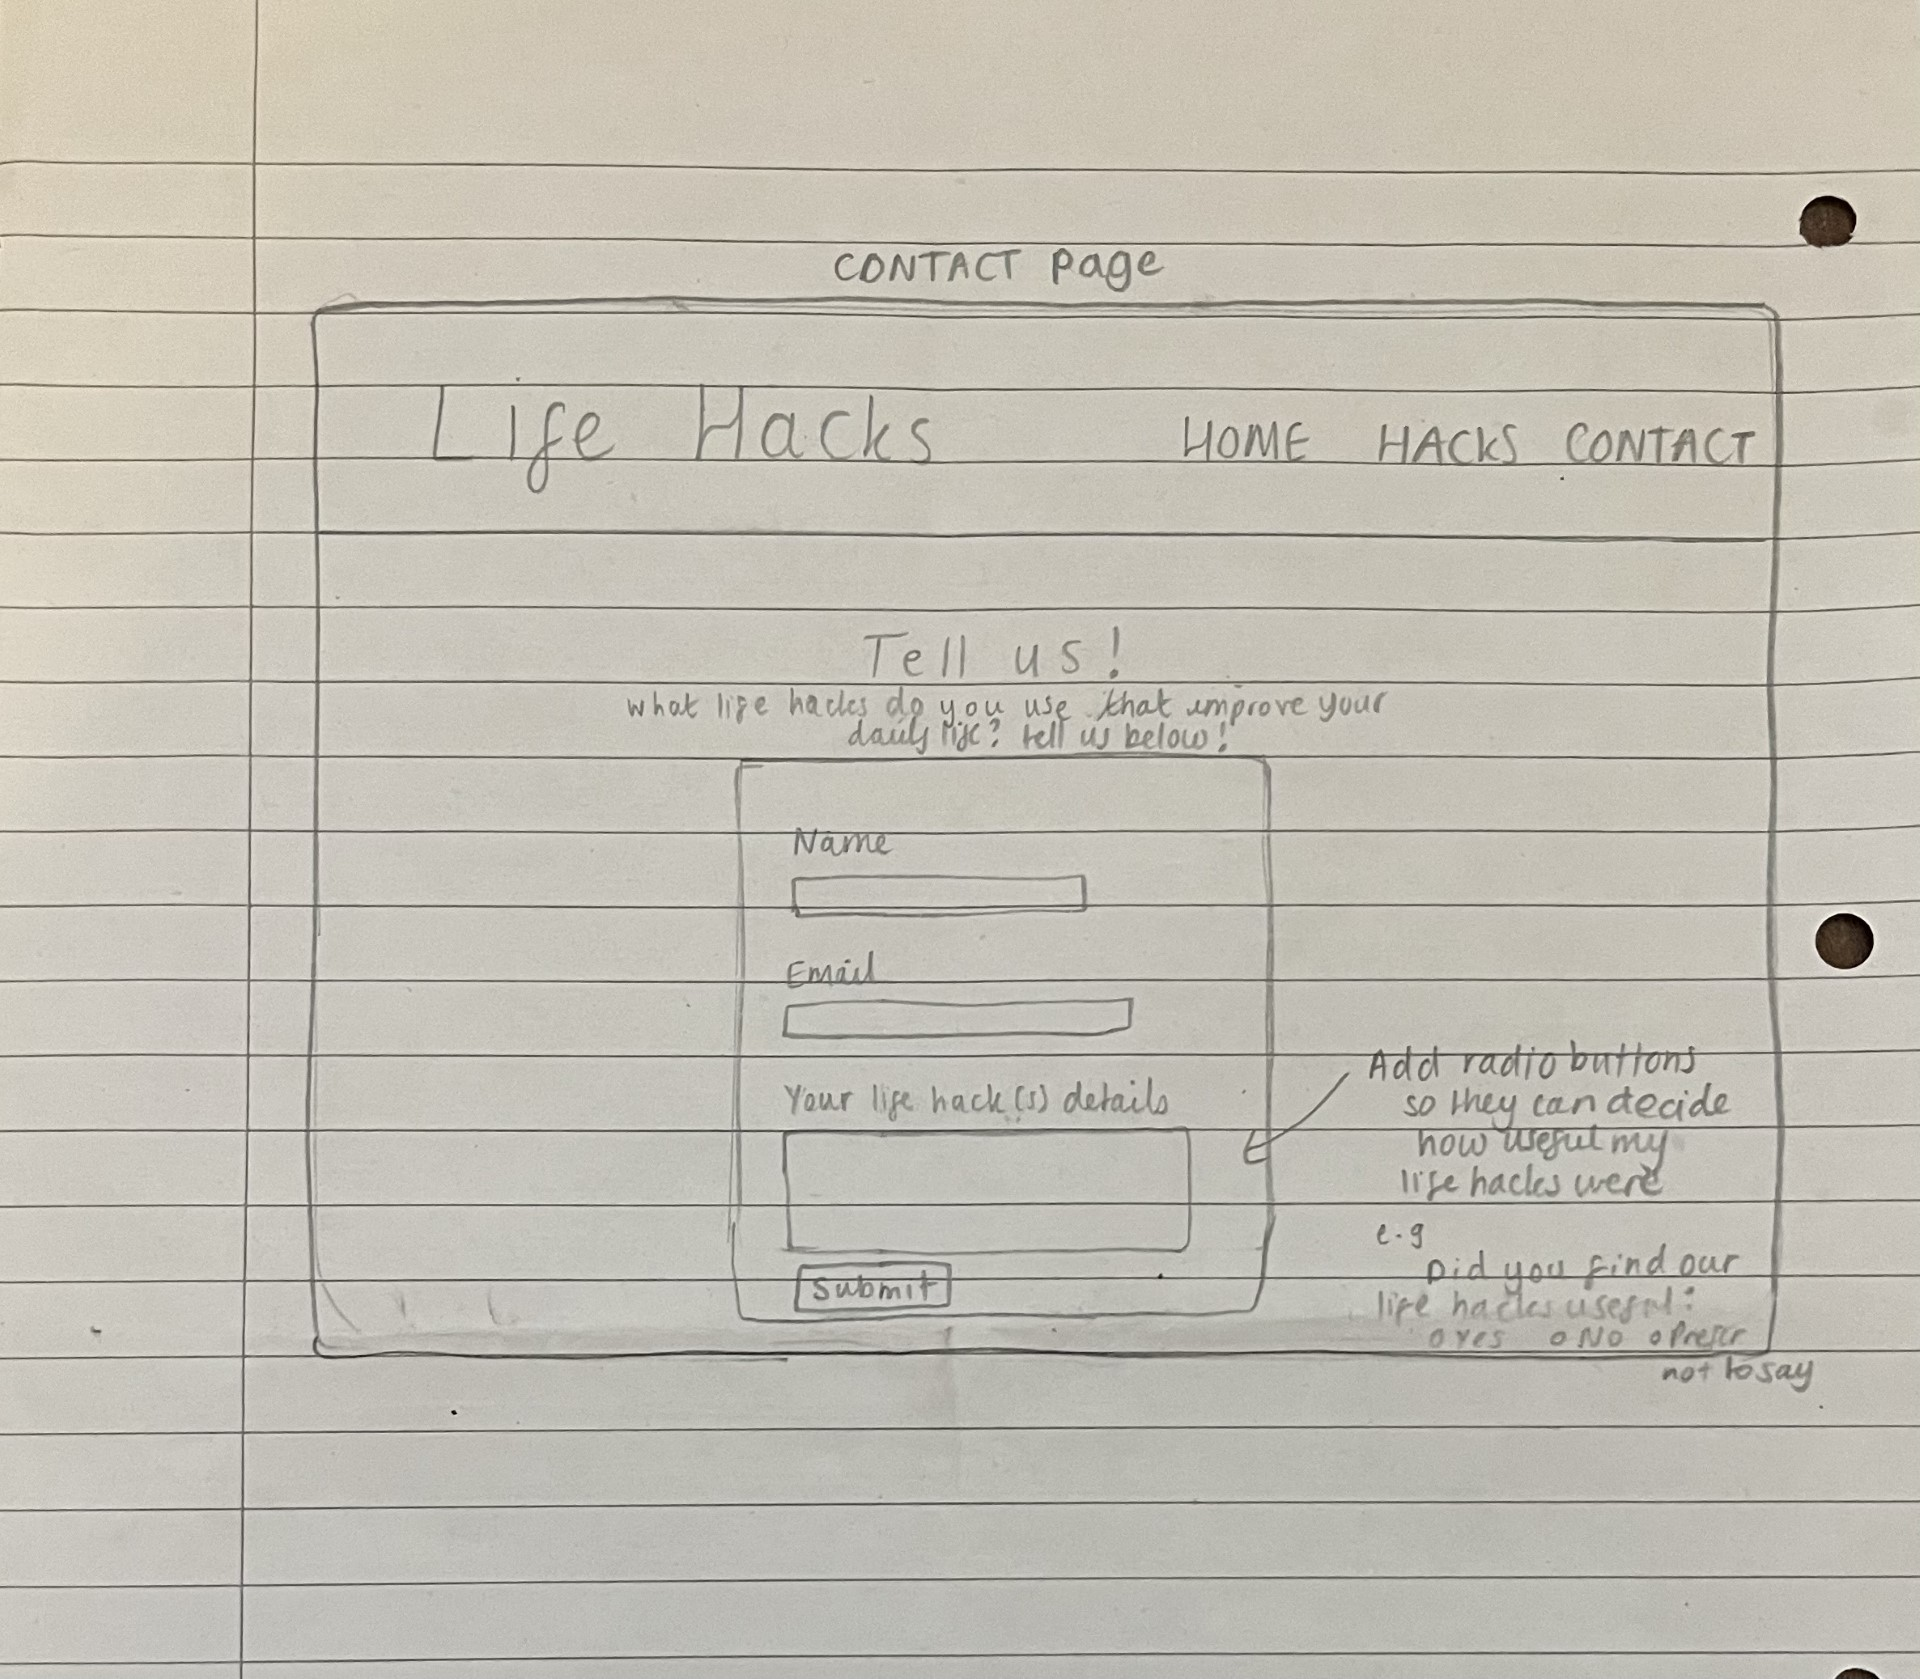 CONTACT page
Life Hacks
HOME HACKS CONTACT
Tell us!
what life hacks do you use that improve your
daily life? tell us below!
Name
Email
Your life hack(s) details
Submit
Add radio buttons
so they can decide
how useful my
life hacks were
e.g
Did you find our
life hacks useful:
o Yes o No o Prefer
not to say